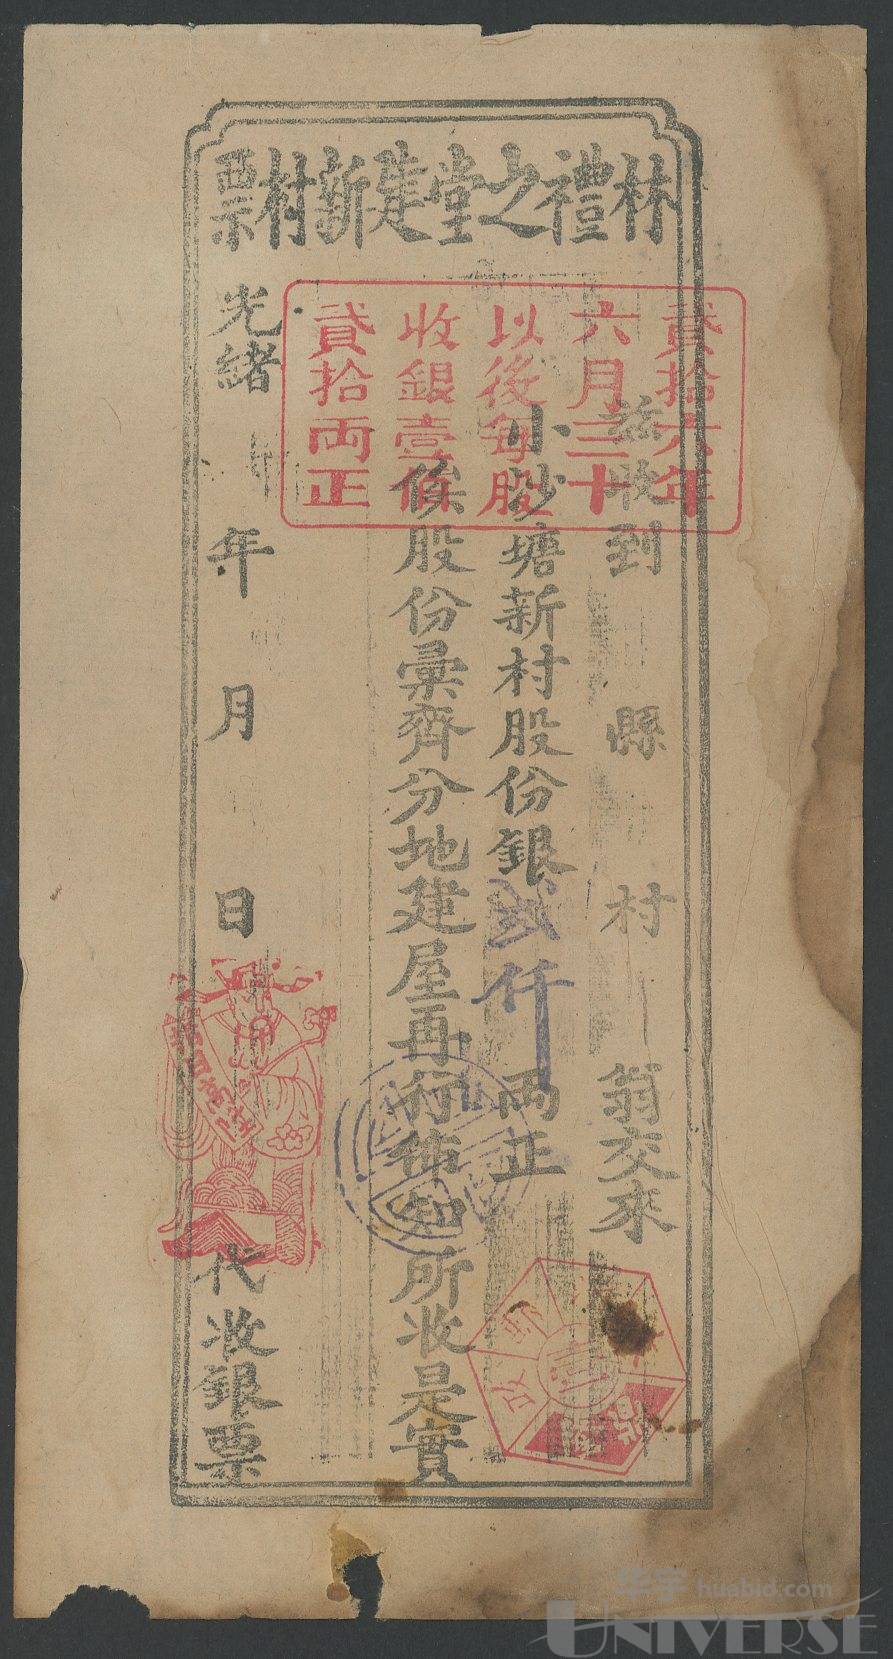 林禮之堂建新村票
茲收到 縣 村 翁交來
小沙塘新村股份銀貳仟両正
候股份彙齊分地建屋再行佈知所收是實
光緒 年 月 日 代收銀票
貳拾六年
六月三十
以後每股
收銀壹條
貳拾両正
华宇 huabid.com
UNIVERSE